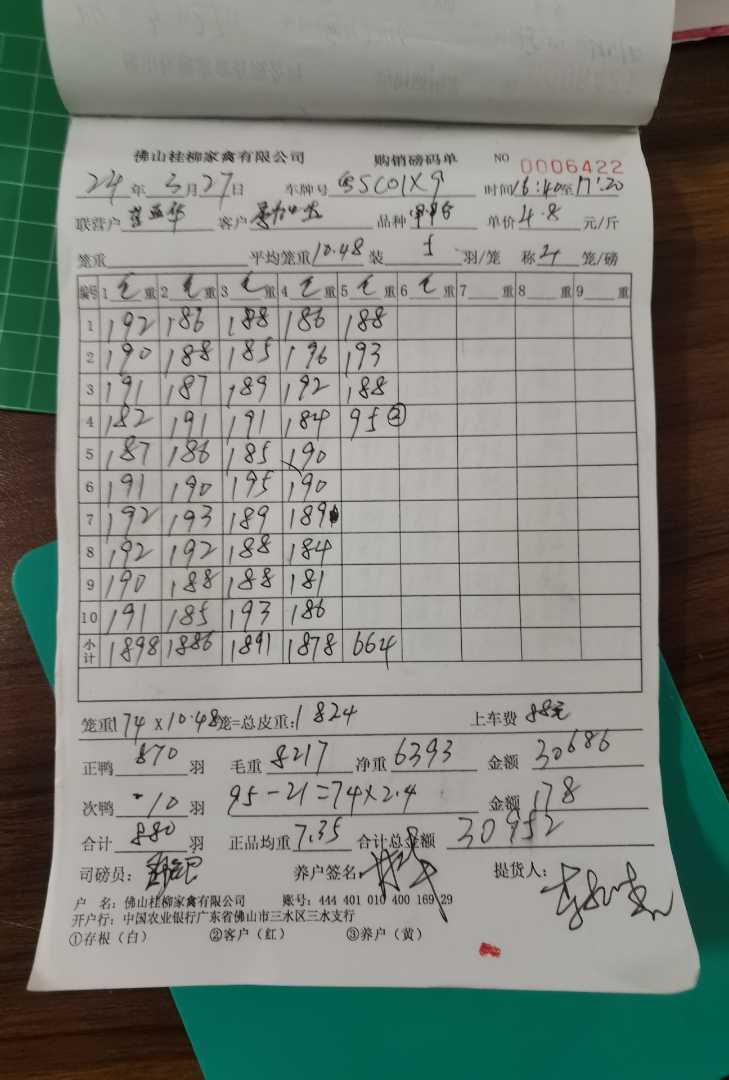 佛山桂柳家禽有限公司 购销磅码单 NO 0006422
24年3月27日 车牌号 时间16:40至17:20
联营户 客户 品种 单价4.8元/斤
笼重 平均笼重10.48 装5羽/笼 称4笼/磅
编号 1毛重 2毛重 3毛重 4毛重 5毛重 6毛重 7重 8重 9重
1 192 186 188 186 188
2 190 188 185 196 193
3 191 187 189 192 188
4 182 191 191 184 95②
5 187 186 185 190
6 191 190 195 190
7 192 193 189 189
8 192 192 188 184
9 190 188 188 181
10 191 185 193 186
小计 1898 1886 1891 1878 664
笼重174×10.48笼=总皮重:1824 上车费 88元
正鸭870羽 毛重8217 净重6393 金额30686
次鸭-10羽 95-21=74×2.4 金额178
合计880羽 正品均重7.35 合计总金额30952
司磅员: 养户签名 提货人:
户 名:佛山桂柳家禽有限公司 账号:444 401 010 400 169 29
开户行:中国农业银行广东省佛山市三水区三水支行
①存根(白) ②客户(红) ③养户(黄)